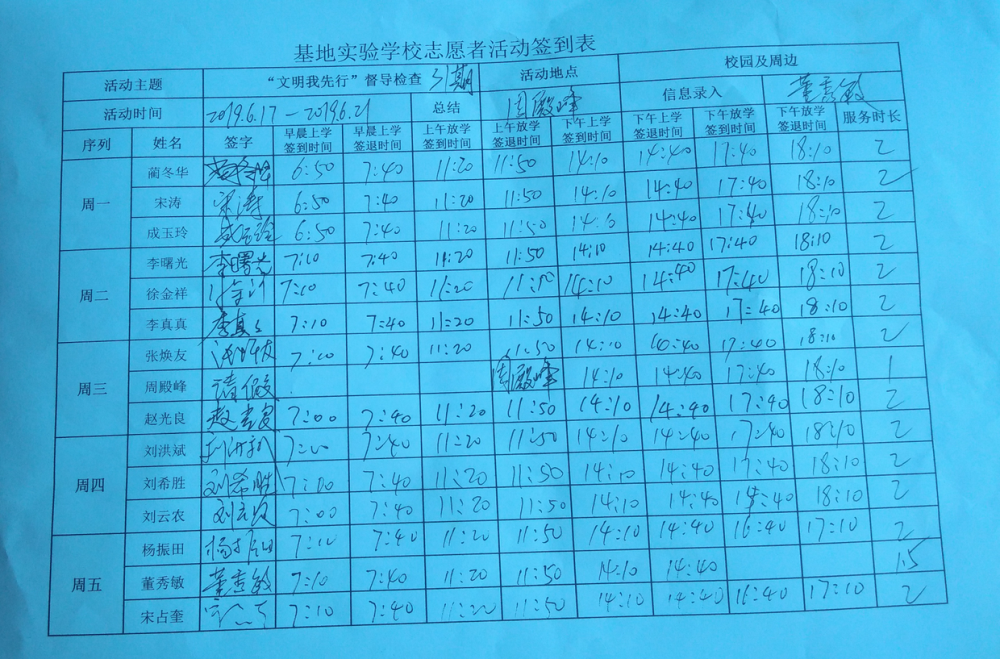 基地实验学校志愿者活动签到表
活动主题 “文明我先行”督导检查 31期 活动地点 校园及周边
活动时间 2019.6.17—2019.6.21 总结 周殿峰 信息录入 董秀敏
序列 姓名 签字 早晨上学签到时间 早晨上学签退时间 上午放学签到时间 上午放学签退时间 下午上学签到时间 下午上学签退时间 下午放学签到时间 下午放学签退时间 服务时长
周一 蔺冬华 蔺冬华 6:50 7:40 11:20 11:50 14:10 14:40 17:40 18:10 2
宋涛 宋涛 6:50 7:40 11:20 11:50 14:10 14:40 17:40 18:10 2
成玉玲 成玉玲 6:50 7:40 11:20 11:50 14:10 14:40 17:40 18:10 2
周二 李曙光 李曙光 7:10 7:40 11:20 11:50 14:10 14:40 17:40 18:10 2
徐金祥 7:10 7:40 11:20 11:50 14:10 14:40 17:40 18:10 2
李真真 李真 7:10 7:40 11:20 11:50 14:10 14:40 17:40 18:10 2
周三 张焕友 张焕友 7:00 7:40 11:20 11:50 14:10 14:40 17:40 18:10 2
周殿峰 请假 周殿峰 14:10 14:40 17:40 18:10 1
赵光良 7:00 7:40 11:20 11:50 14:10 14:40 17:40 18:10 2
周四 刘洪斌 刘洪斌 7:00 7:40 11:20 11:50 14:10 14:40 17:40 18:10 2
刘希胜 刘希胜 7:00 7:40 11:20 11:50 14:10 14:40 17:40 18:10 2
刘云农 刘云农 7:00 7:40 11:20 11:50 14:10 14:40 17:40 18:10 2
周五 杨振田 杨振田 7:10 7:40 11:20 11:50 14:10 14:40 16:40 17:10 2
董秀敏 董秀敏 7:10 7:40 11:20 11:50 14:10 14:40 1.5
宋占奎 7:10 7:40 11:20 11:50 14:10 14:40 16:40 17:10 2